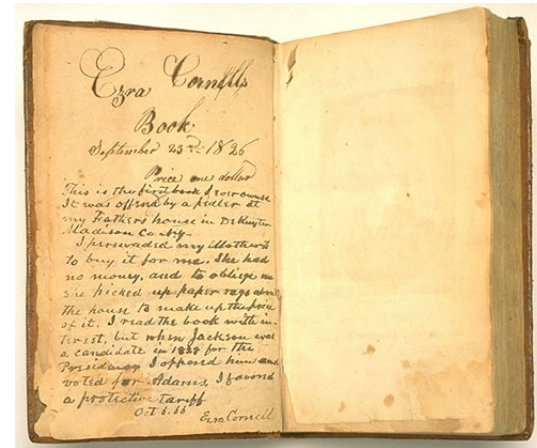 Ezra Cornell's
Book
September 23rd 1826
Price one dollar
This is the first book I ever owned
It was offered by a pedler at
my Fathers house in DeRuyter
Madison Co NY-
I perswaded my Mother
to buy it for me. She had
no money, and to oblige me
she picked up paper rags about
the house to make up the price
of it. I read the book with in-
terest, but when Jackson was
a candidate in 1828 for the
Presidency I opposed him and
voted for Adams, I favored
a protective tariff
Oct 5.66
Ezra Cornell